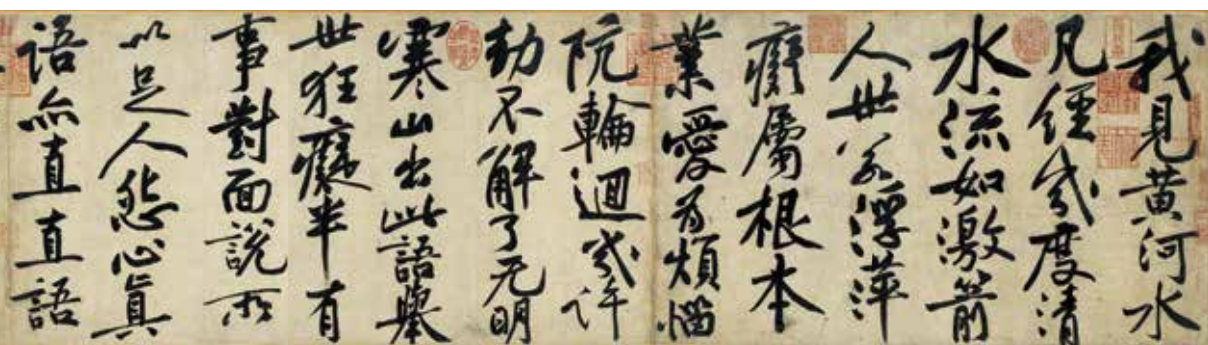 我見黃河水
凡經幾度清
水流如激箭
人世若浮萍
癡屬根本
業愛為煩惱
阬輪迴幾許
劫不解了无明
寒山出此語舉
世狂癡半有
事對面說所
以足人怨心真
語亦直直語